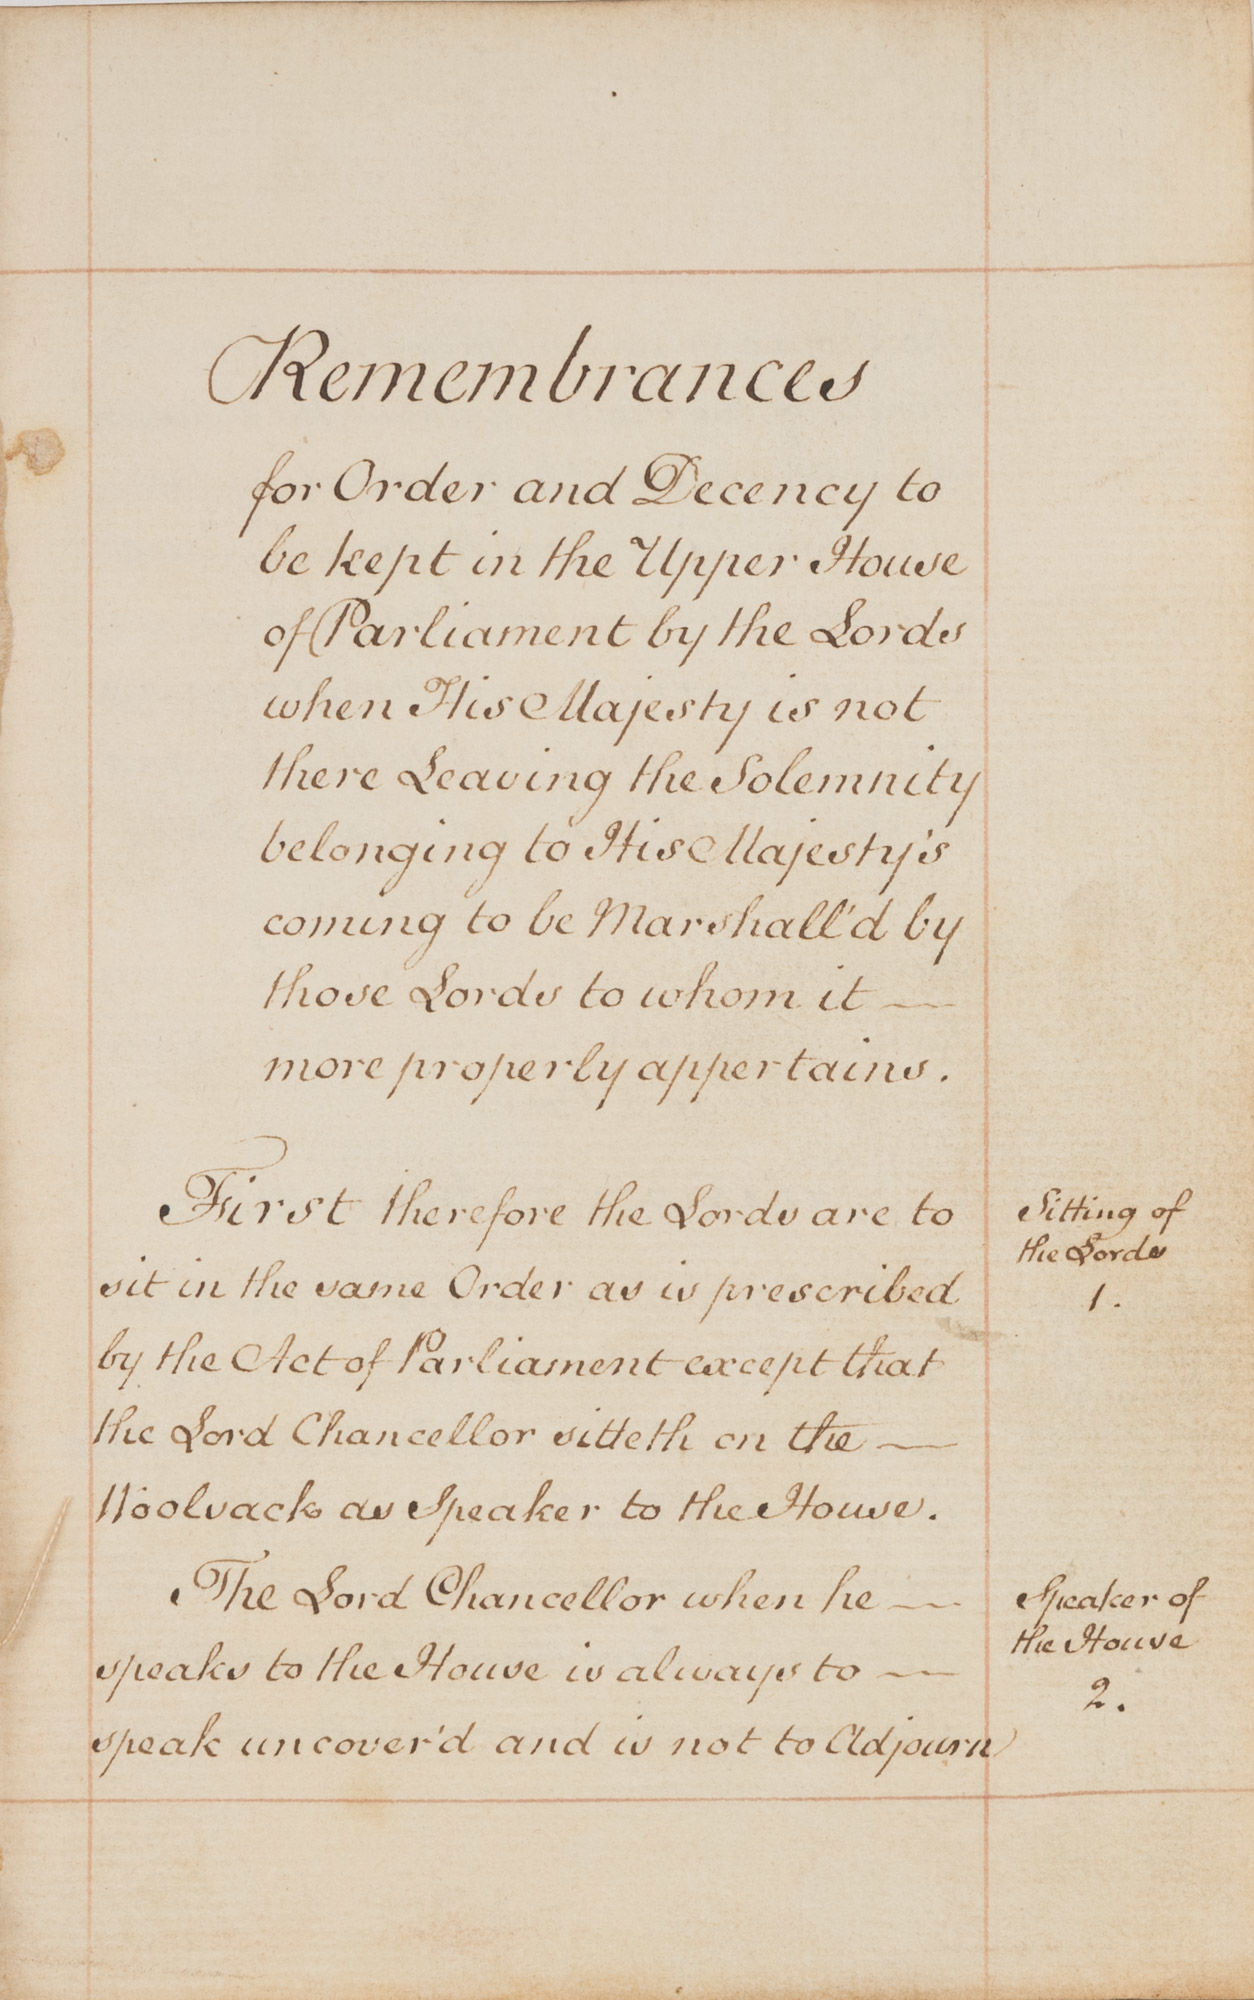 Remembrances
for Order and Decency to
be kept in the Upper House
of Parliament by the Lords
when His Majesty is not
there Leaving the Solemnity
belonging to His Majesty's
coming to be Marshall'd by
those Lords to whom it —
more properly appertains.
First therefore the Lords are to
sit in the same Order as is prescribed
by the Act of Parliament except that
the Lord Chancellor sitteth on the —
Woolsack as Speaker to the House.
Sitting of
the Lords
1.
The Lord Chancellor when he —
speaks to the House is always to —
speak uncover'd and is not to Adjourn
Speaker of
the House
2.